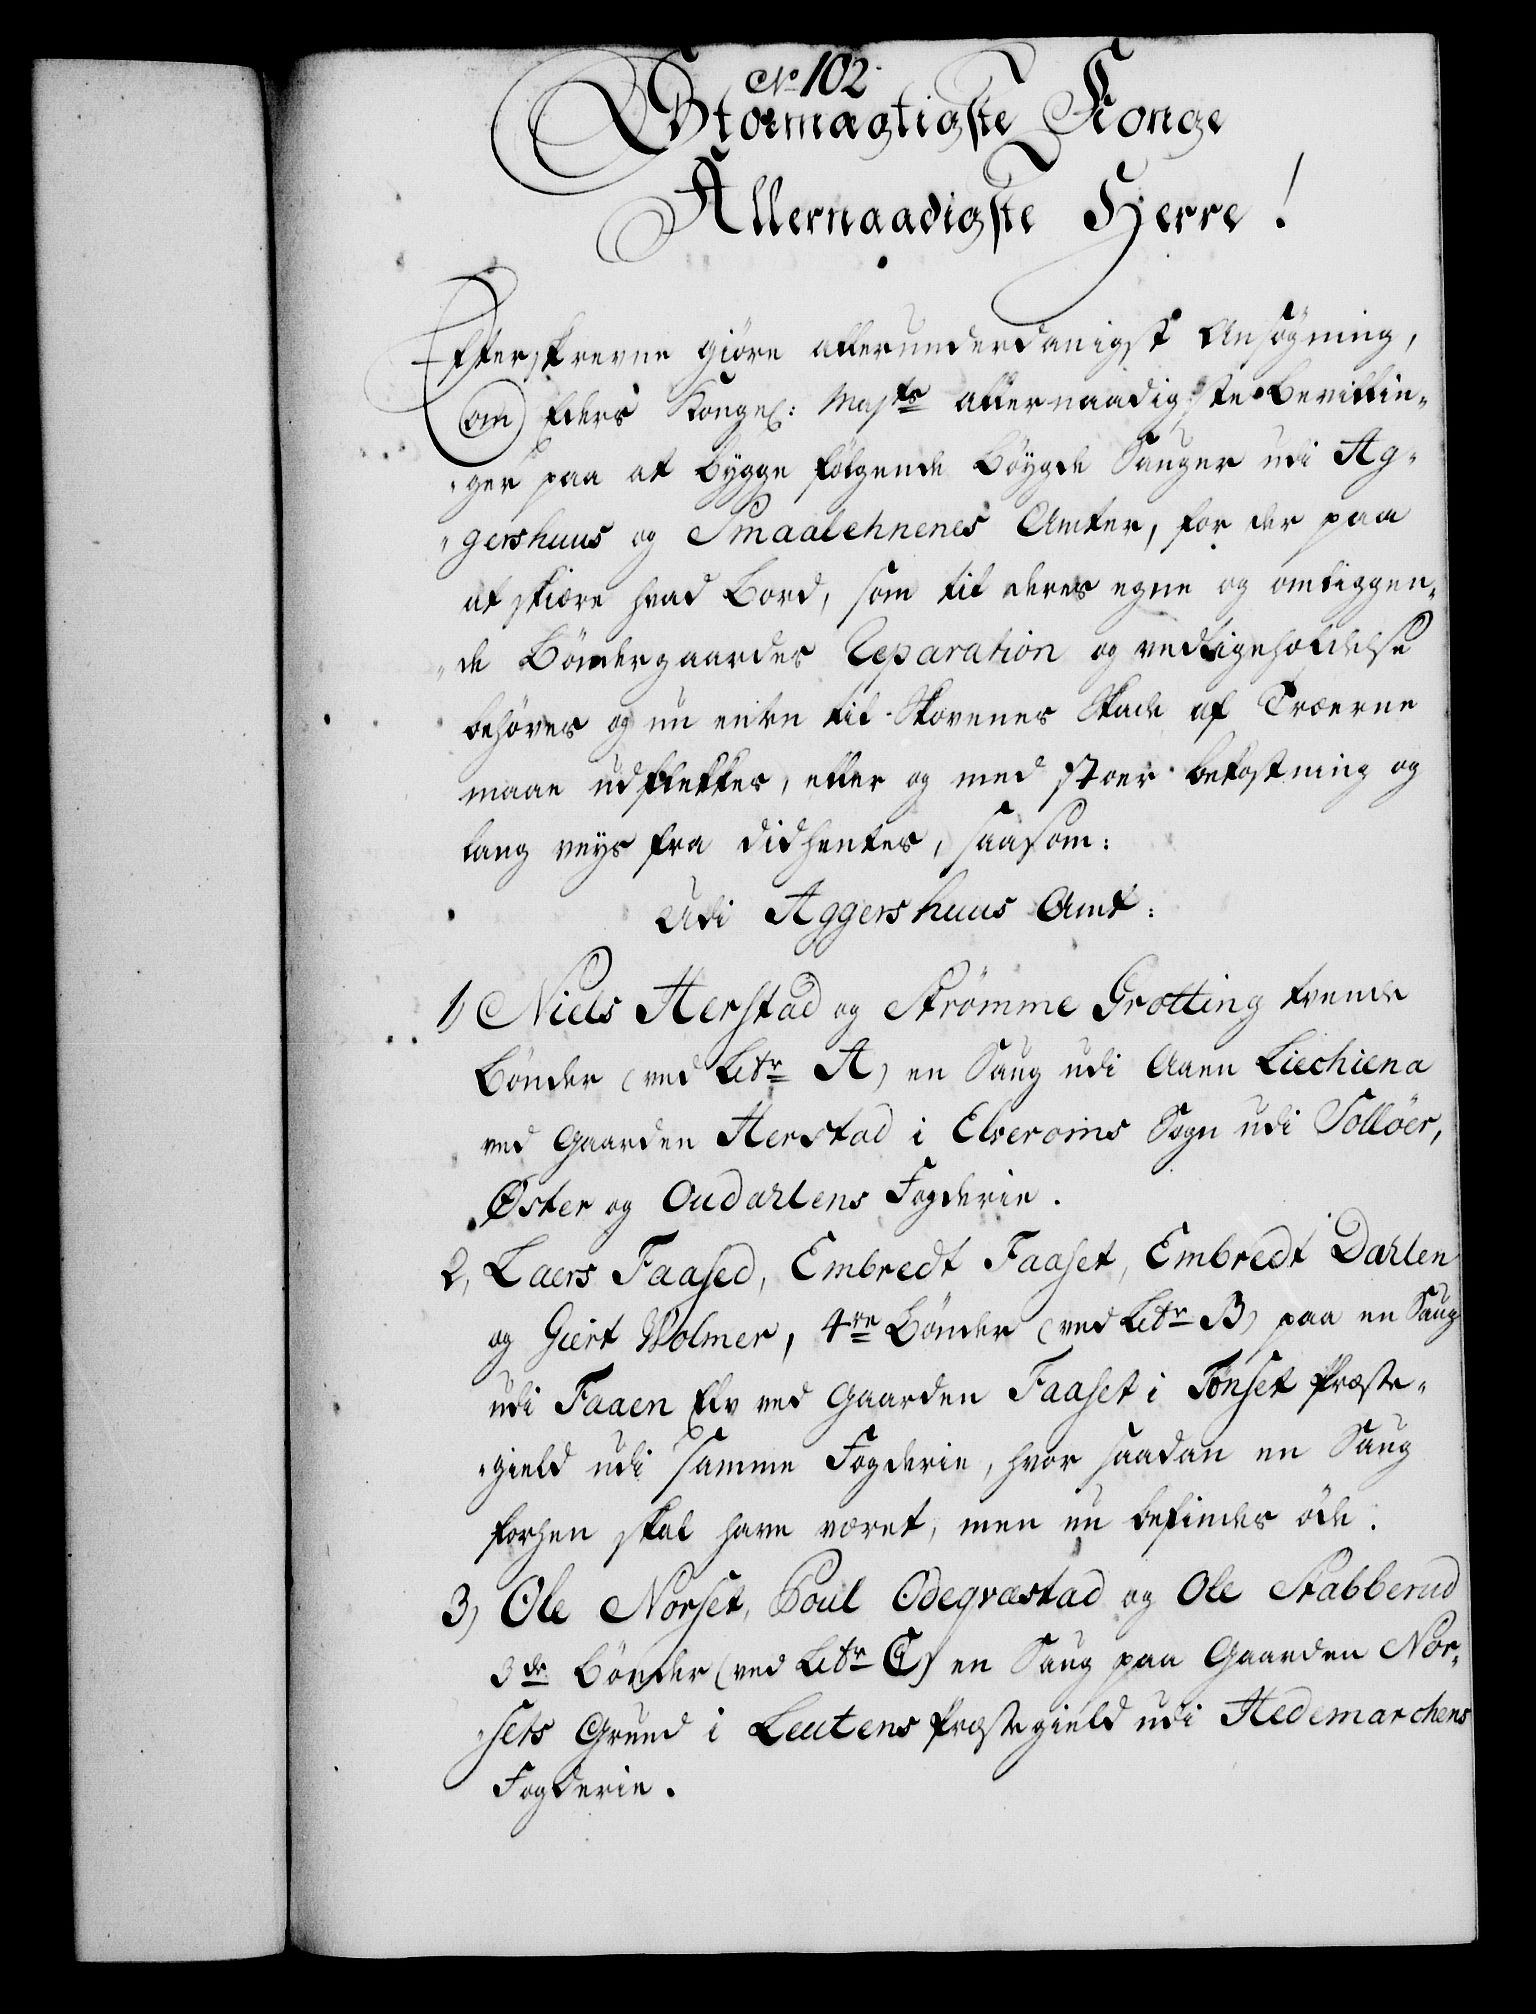 No 102.
Stormægtigste Konge
Allernaadigste Herre!
Efterskrevne giøre allerunderdanigst Ansøgning,
om Eders Kongel: Majts allernaadigste Bevillin-
ger paa at bygge følgende Böygde Sauger udi Ag-
gershuus og Smaalehnenes Amter, for der paa
at skiære hvad Bord, som til deres egne og omliggen-
de Böndergaardes Reparation og vedligeholdelse
behöves og nu enten til Skovenes Skade af Træerne
maae udflekkes, eller og med stoer bekostning og
lang veys fra didhentes, saasom:
Udi Aggershuus Amt:
1) Niels Herstad og Strömme Grotting tvende
Bönder (ved Litr A) en Saug udi Aaen Liechiena
ved Gaarden Herstad i Elveroms Sogn udi Solløer,
Öster og Oudahlens Fogderie.
2, Laers Faased, Embredt Faaset, Embredt Dahlen
og Giert Wolmer, 4re Bönder (ved Litr B) paa en Saug
udi Faaen Elv ved Gaarden Faaset i Tönset Præste-
gield udi samme Fogderie, hvor saadan en Saug
forhen skal have været, men nu befindes öde.
3) Ole Norset, Poul Ödeqvæstad og Ole Stabberud
3de Bönder (ved Litr C) en Saug paa Gaarden Nor-
sets Grund i Leutens Præstegield udi Hedemarchens
Fogderie.